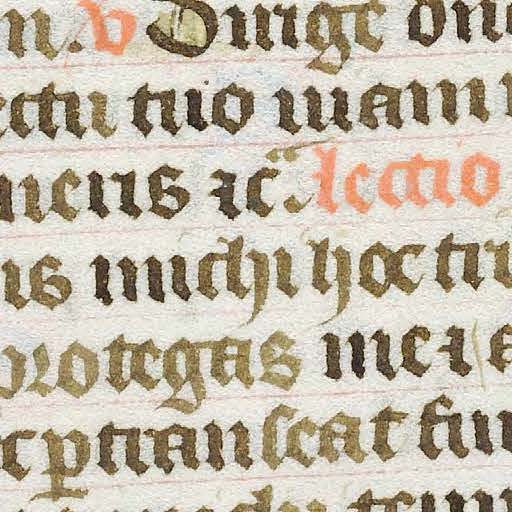 m. v Dirige dn
ectu tuo uiam m
meus ⁊c̈. lectio
uis michi hoc tri
protegas me ⁊ a
ec ꝑtranseat fur